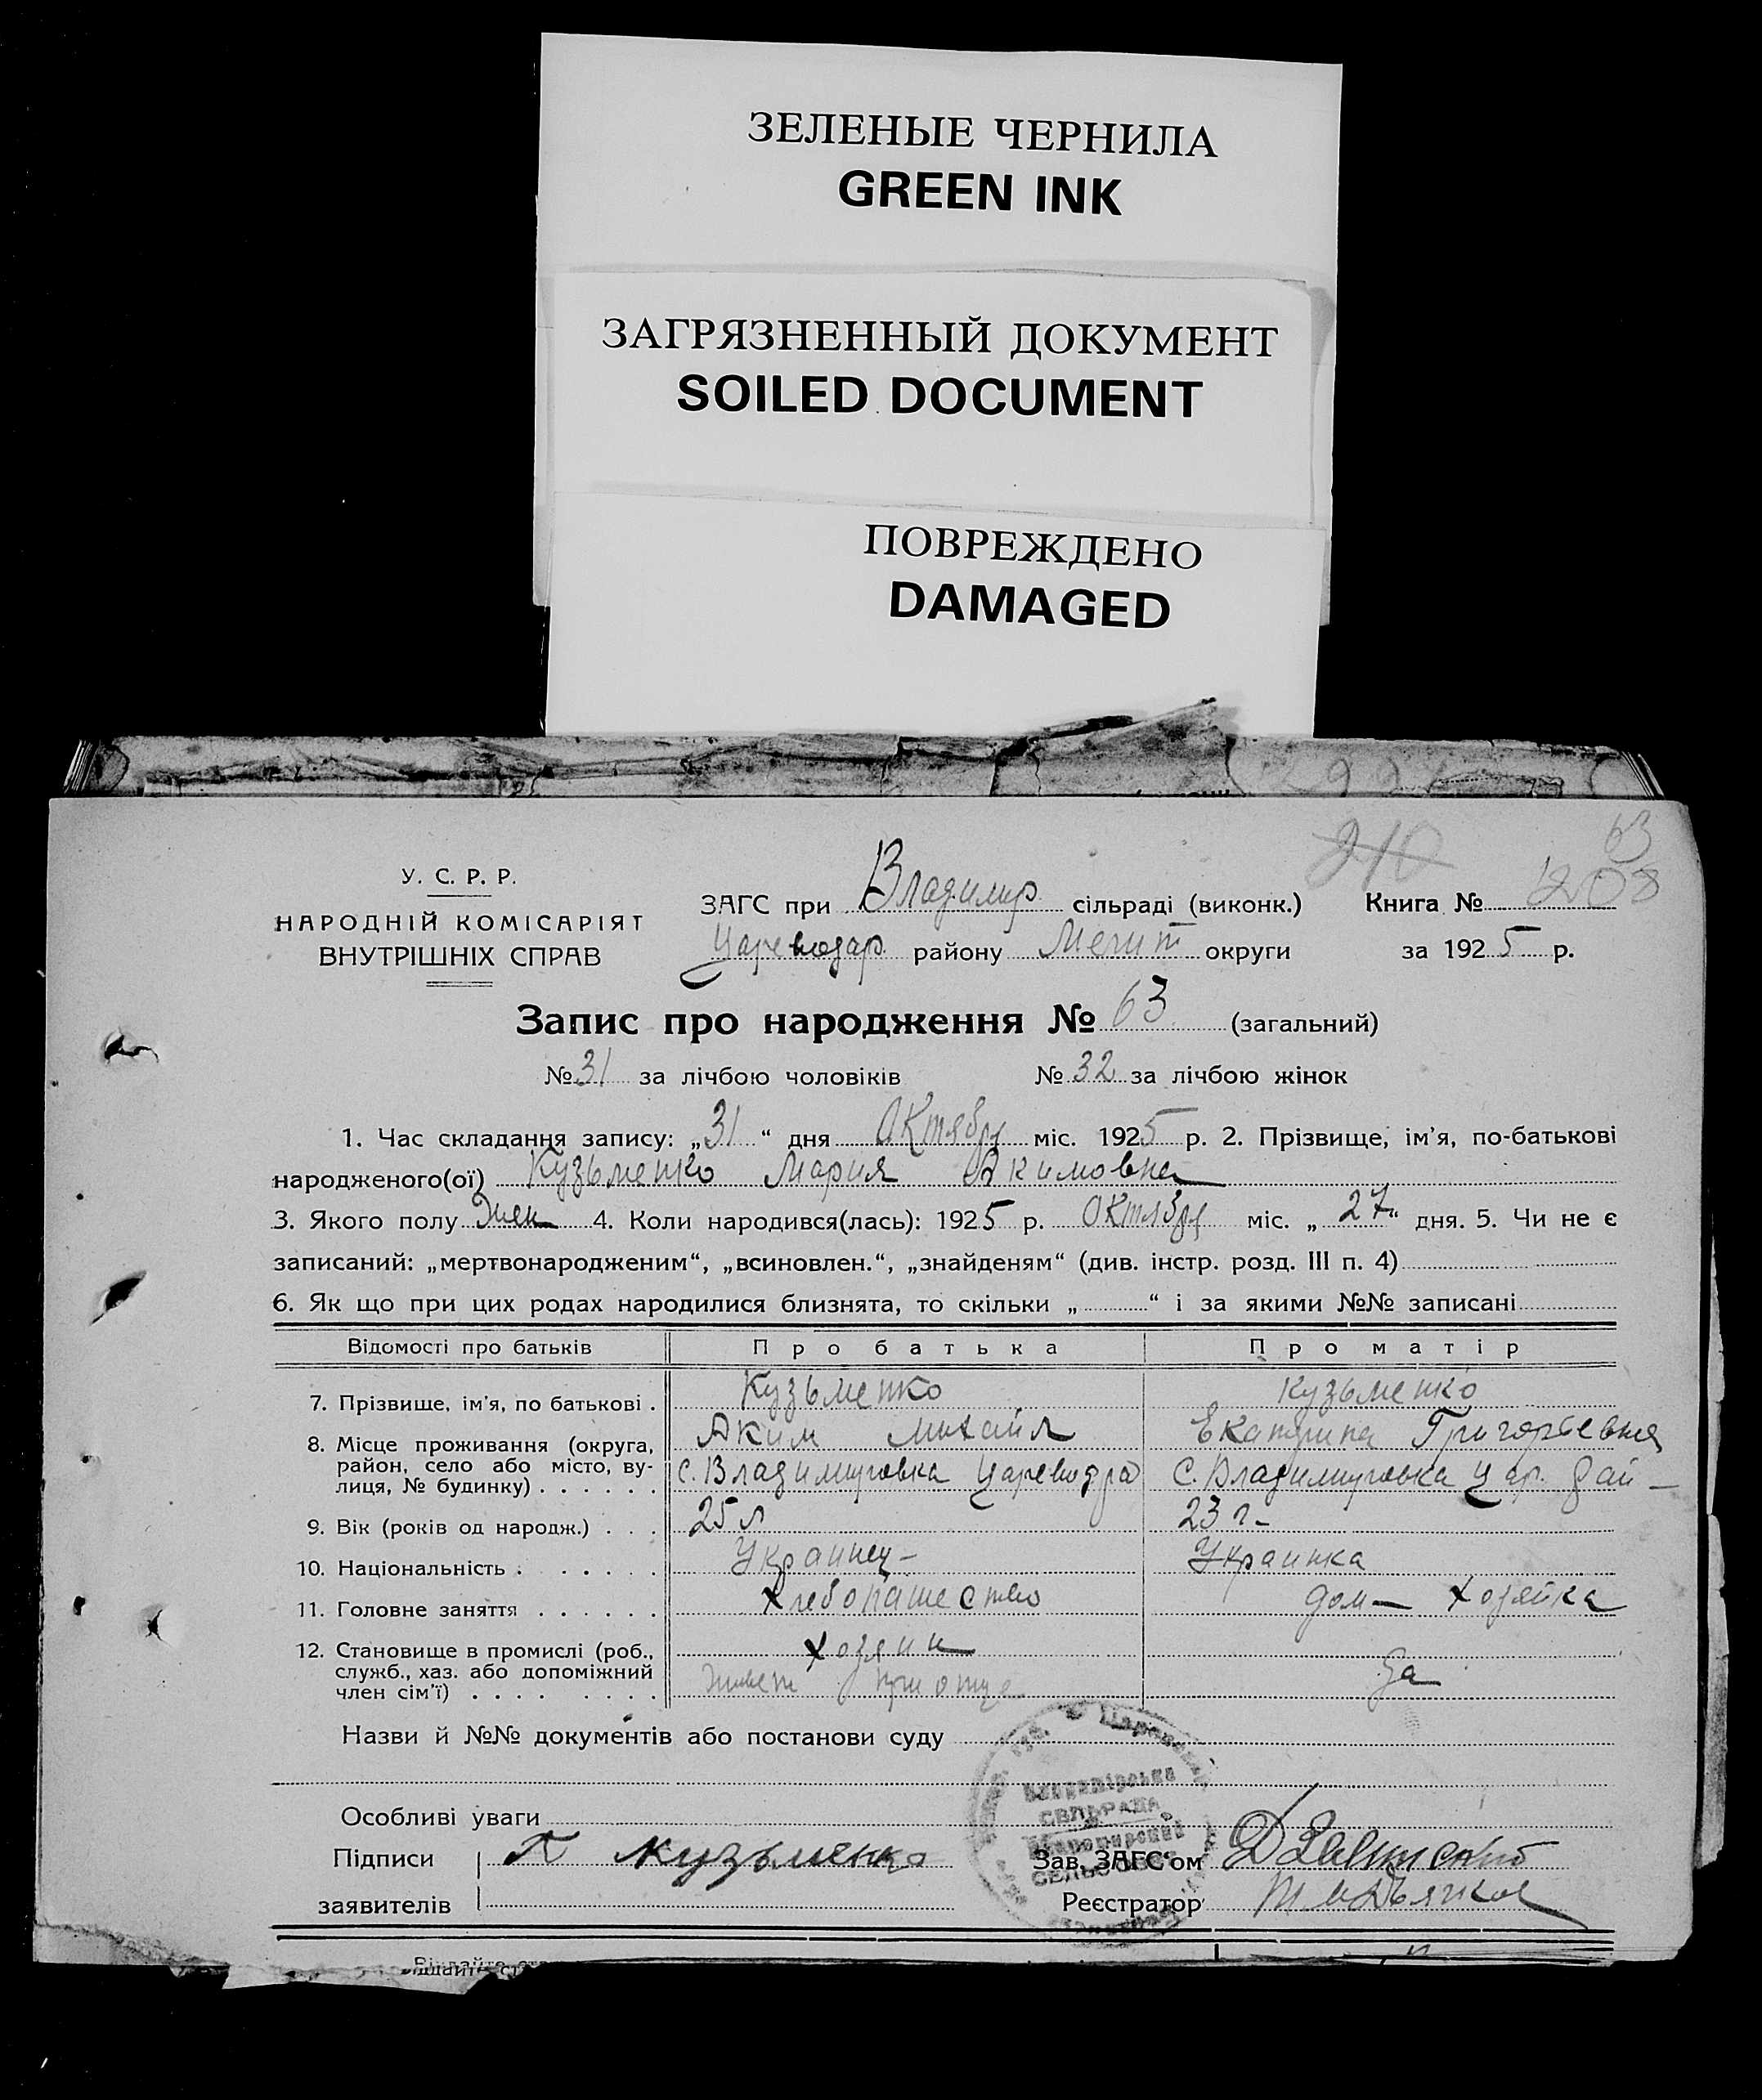 ЗЕЛЕНЫЕ ЧЕРНИЛА
GREEN INK
ЗАГРЯЗНЕННЫЙ ДОКУМЕНТ
SOILED DOCUMENT
ПОВРЕЖДЕНО
DAMAGED
63
210
У. С. Р. Р.
НАРОДНІЙ КОМІСАРІЯТ
ВНУТРІШНІХ СПРАВ
ЗАГС при Владимир сільраді (виконк.) Книга № 208
Цареводар району Мелит округи за 1925 р.
Запис про народження № 63 (загальний)
№ 31 за лічбою чоловіків № 32 за лічбою жінок
1. Час складання запису: „31“ дня Октября міс. 1925 р. 2. Прізвище, ім’я, по-батькові
народженого(ої) Кузьменко Мария Акимовна
3. Якого полу Жен 4. Коли народився(лась): 1925 р. Октября міс. „27“ дня. 5. Чи не є
записаний: „мертвонародженим“, „всиновлен.“, „знайденям“ (див. інстр. розд. III п. 4)
6. Як що при цих родах народилися близнята, то скільки „ “ і за якими №№ записані
Відомості про батьків Про батька Про матір
7. Прізвище, ім’я, по батькові . Кузьменко Кузьменко
Аким Михайл Екатерина Григорьевна
8. Місце проживання (округа, район, село або місто, вулиця, № будинку) . . . . . . с. Владимировка Цареводра С. Владимировка Цар. Рай –
9. Вік (років од народж.) . . . 25 л 23 г –
10. Національність . . . . . . Украинец – Украинка
11. Головне заняття . . . . . . Хлебопашество дом – хозяйка
12. Становище в промислі (роб., служб., хаз. або допоміжний член сім’ї) . . . . . . . . хозяин
Живет при отце да
Назви й №№ документів або постанови суду
Особливі уваги
СЕЛЬРАДА
Підписи Кузьменко Зав. ЗАГС’ом
заявителів Реєстратор